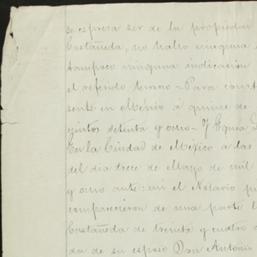 se espresa ser de la propiedad
Castañeda, no hallo ninguna
tampoco ninguna indicacion
el referido terreno - Para const
sente en México á quince de
cientos setenta y ocho -
En la Ciudad de Mexico a las
del dia trece de Mayo de mil
y ocho ante: mi el Notario
comparecieron de una parte
Castañeda de treinta y cuatro
da de su esposo Don Antonio